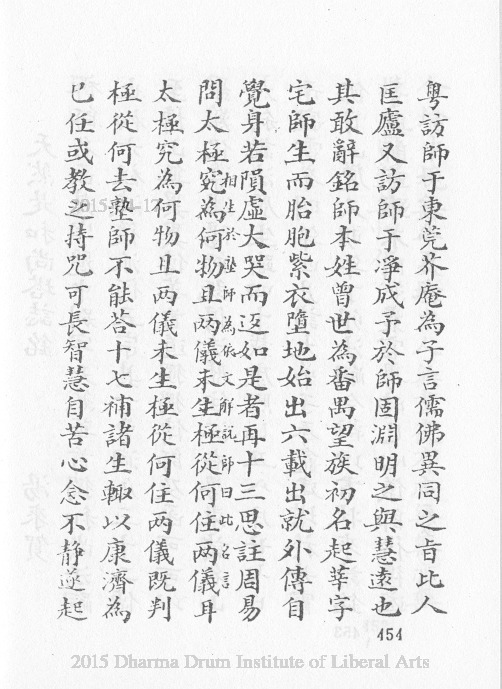 粤訪師于東莞芥庵為予言儒佛異同之旨比人
匡廬又訪師于淨成予於師固淵明之與慧遠也
其敢辭銘師本姓曾世為番禺望族初名起莘字
宅師生而胎胞紫衣墮地始出六載出就外傳自
覺身若隕虛大哭而返如是者再十三思註周易
相生於塾師為依文解説師曰此名言
問太極究為何物且两儀未生極從何住两儀耳
太極究為何物且两儀未生極從何住两儀既判
極從何去塾師不能荅十七補諸生輙以康濟為
已任或教之持咒可長智慧自苦心念不靜遂起
454
2015 Dharma Drum Institute of Liberal Arts